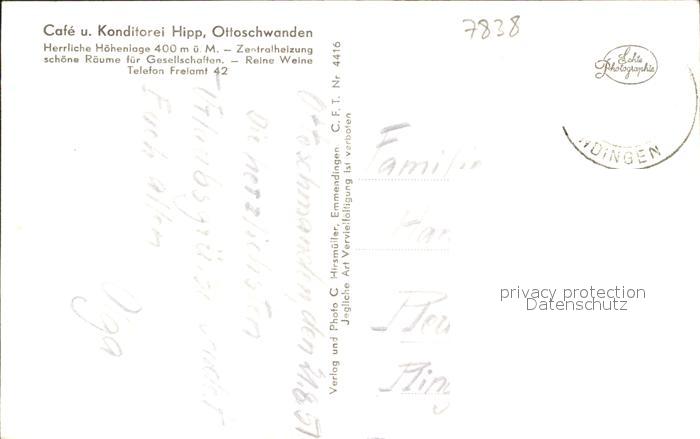 Café u. Konditorei Hipp, Ottoschwanden
Herrliche Höhenlage 400 m ü. M. – Zentralheizung
schöne Räume für Gesellschaften. – Reine Weine
Telefon Freiamt 42
7838
Echte
Photographie
NDINGEN
Ottoschwanden den 11.8.51
Die herzlichsten
Urlaubsgrüße
Euch allen
Verlag und Photo C. Hirsmüller, Emmendingen. C. F. T. Nr 4416
Jegliche Art Vervielfältigung ist verboten
Familie
privacy protection
Datenschutz